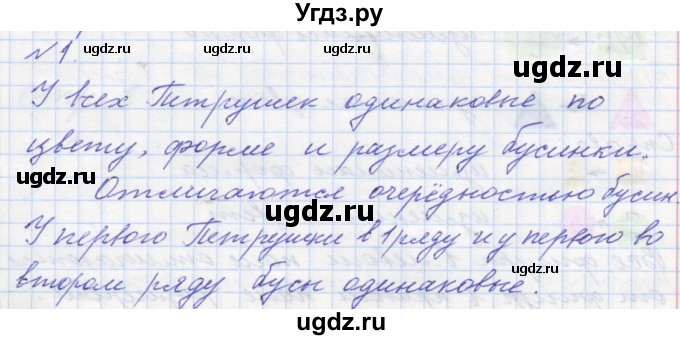 Угдз.ру
№1.
У всех Петрушек одинаковые по
цвету, форме и размеру бусинки.
Отличаются очерёдностью бусин.
У первого Петрушки в 1 ряду и у первого во
втором ряду бусы одинаковые.
ugdz.ru ugdz.ru ugdz.ru
ugdz.ru
ugdz.ru
ugdz.ru
ugdz.ru
ugdz.ru ugdz.ru
ugdz.ru
ugdz.ru ugdz.ru